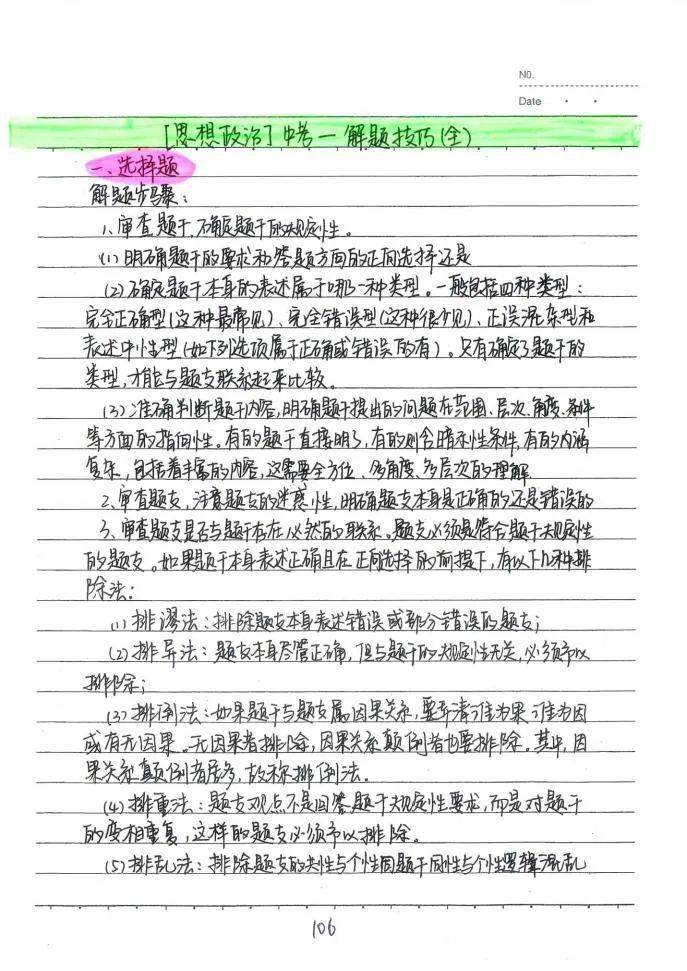 NO.
Date
[思想政治] 中考一解题技巧(全)
一、选择题
解题步骤：
1、审查题干,确定题干的规定性。
(1)明确题干的要求和答题方向的正向选择还是
(2)确定题干本身的表述属于哪一种类型。一般包括四种类型：
完全正确型(这种最常见)、完全错误型(这种很少见)、正误混杂型和
表述中性型(如下列选项属于正确或错误的有)。只有确定了题干的
类型,才能与题支联系起来比较。
(3)准确判断题干内容,明确题干提出的问题在范围、层次、角度、条件
等方面的指向性。有的题干直接明了,有的则含暗示性条件,有的内涵
复杂,包括着丰富的内容,这需要全方位、多角度、多层次的理解
2、审查题支,注意题支的迷惑性,明确题支本身是正确的还是错误的
3、审查题支是否与题干存在必然的联系。题支必须是符合题干规定性
的题支。如果题干本身表述正确且在正向选择的前提下,有以下几种排
除法：
(1)排谬法：排除题支本身表述错误或部分错误的题支；
(2)排异法：题支本身尽管正确,但与题干的规定性无关,必须予以
排除；
(3)排倒法：如果题干与题支属因果关系,要弄清谁为果谁为因
或有无因果。无因果者排除,因果关系颠倒者也要排除。其中,因
果关系颠倒者居多,故称排倒法。
(4)排重法：题支观点不是回答题干规定性要求,而是对题干
的变相重复,这样的题支必须予以排除。
(5)排乱法：排除题支的共性与个性同题干同性与个性逻辑混乱
106